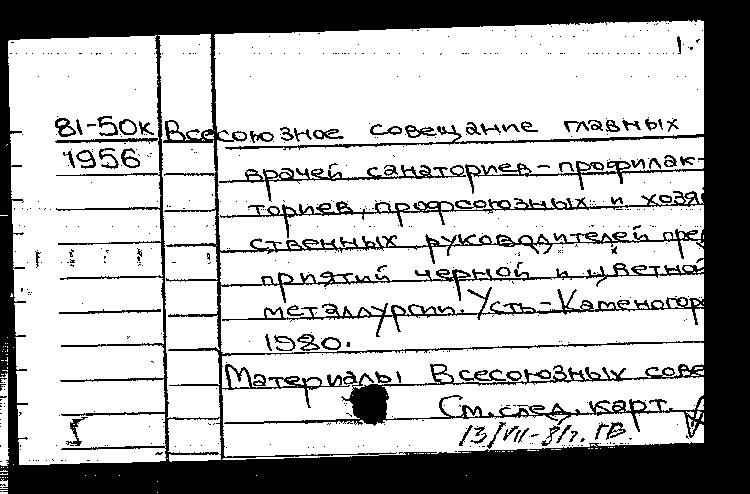 1.
81-50к Всесоюзное совещание главных
1956
врачей санаториев-профилак-
ториев, профсоюзных и хозя
ственных руководителей пред
приятий черной и цветной
металлургии. Усть-Каменогор
1980.
Материалы Всесоюзных сове
См. след. карт.
13/VII-81г.